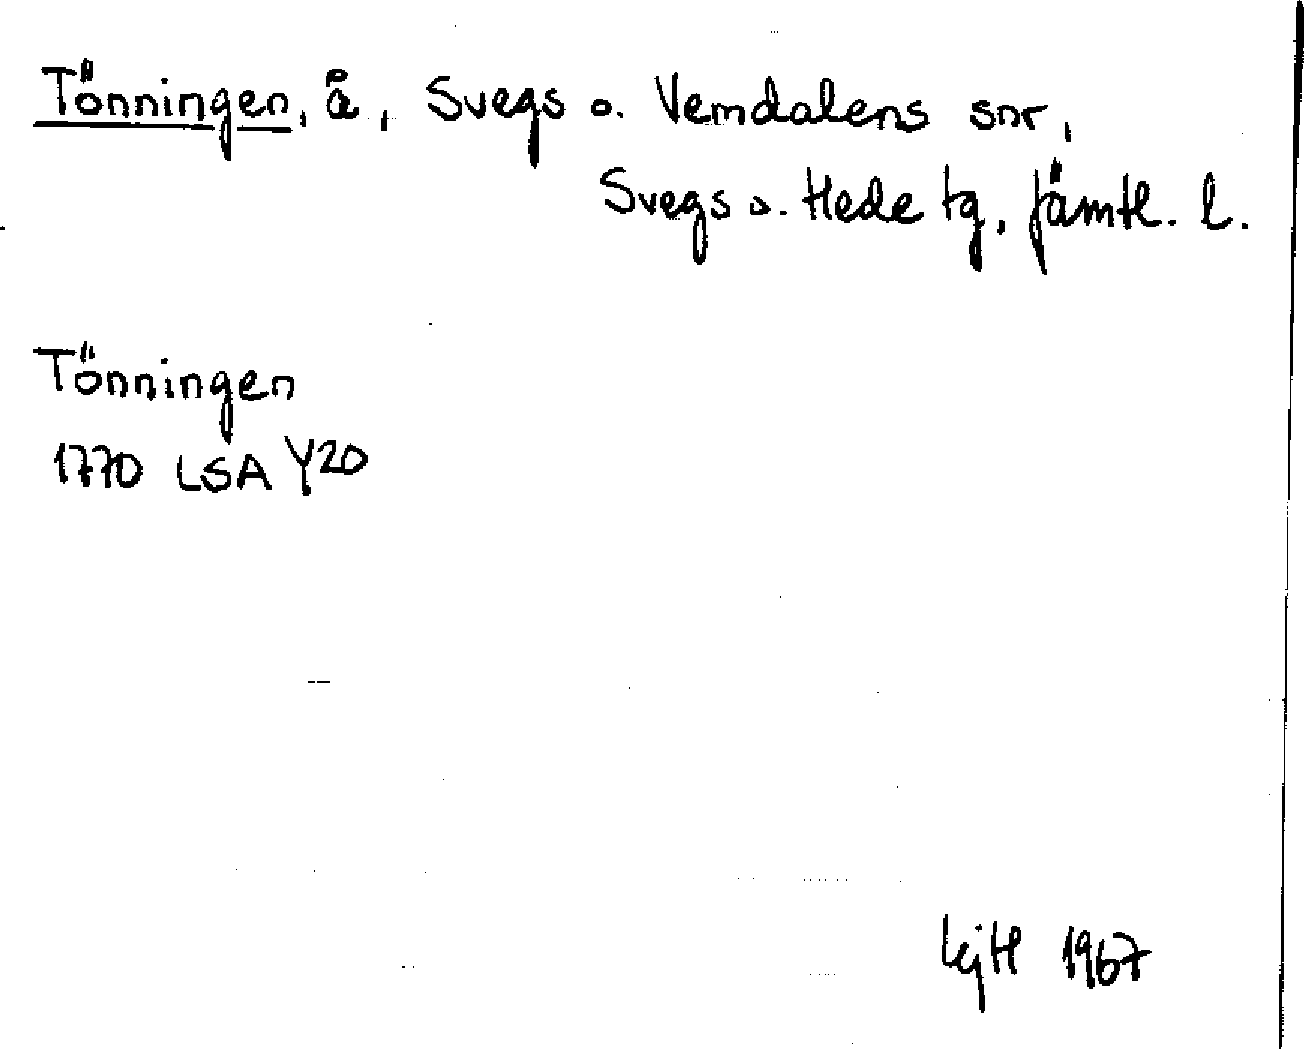 Tönningen, å, Svegs o. Vemdalens snr,
Svegs o. Hede tg, Jämtl. l.
Tönningen
1770 LSA Y20
1967